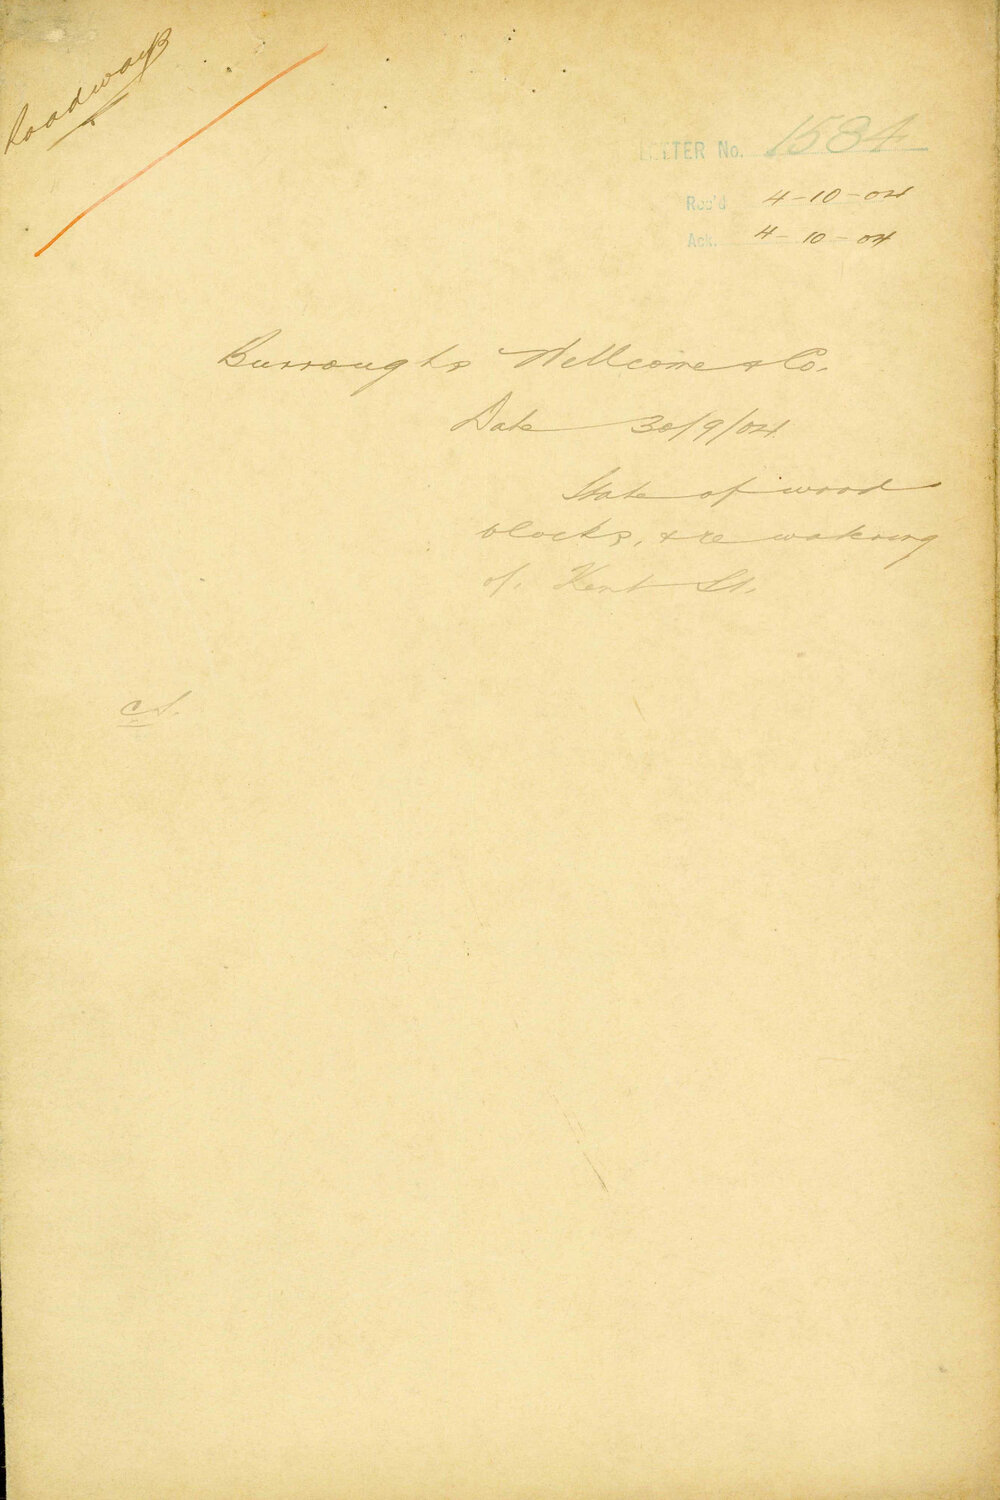 Roadways
LETTER No. 1584
Rec'd 4-10-04
Ack. 4-10-04
Burroughs Wellcome & Co.
Date 30/9/04
State of wood
blocks, & re watering
of Kent St.